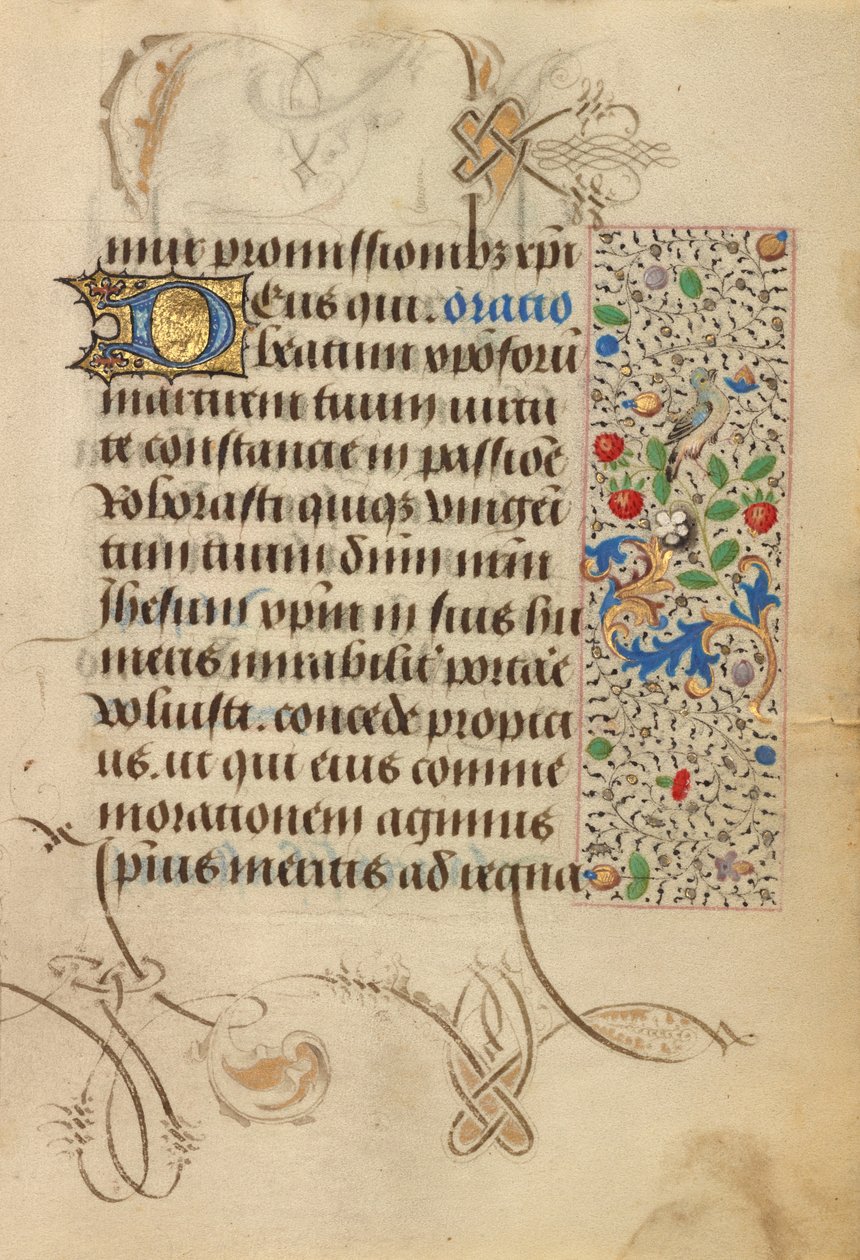 mur promissionibꝫ xp̄i
Deus qui. oratio
beatum xpōforū
martirem tuum uirtu
te constancie in passiōe
Roborasti quiqꝫ vnigeī
tum tuum dūm nr̄m
Jhesum xp̄m in suis hu
meris mirabilit' portar̄e
voluisti. concede propici
us. ut qui eius comme
morationem agimus
ip̄ius meritis ad regna